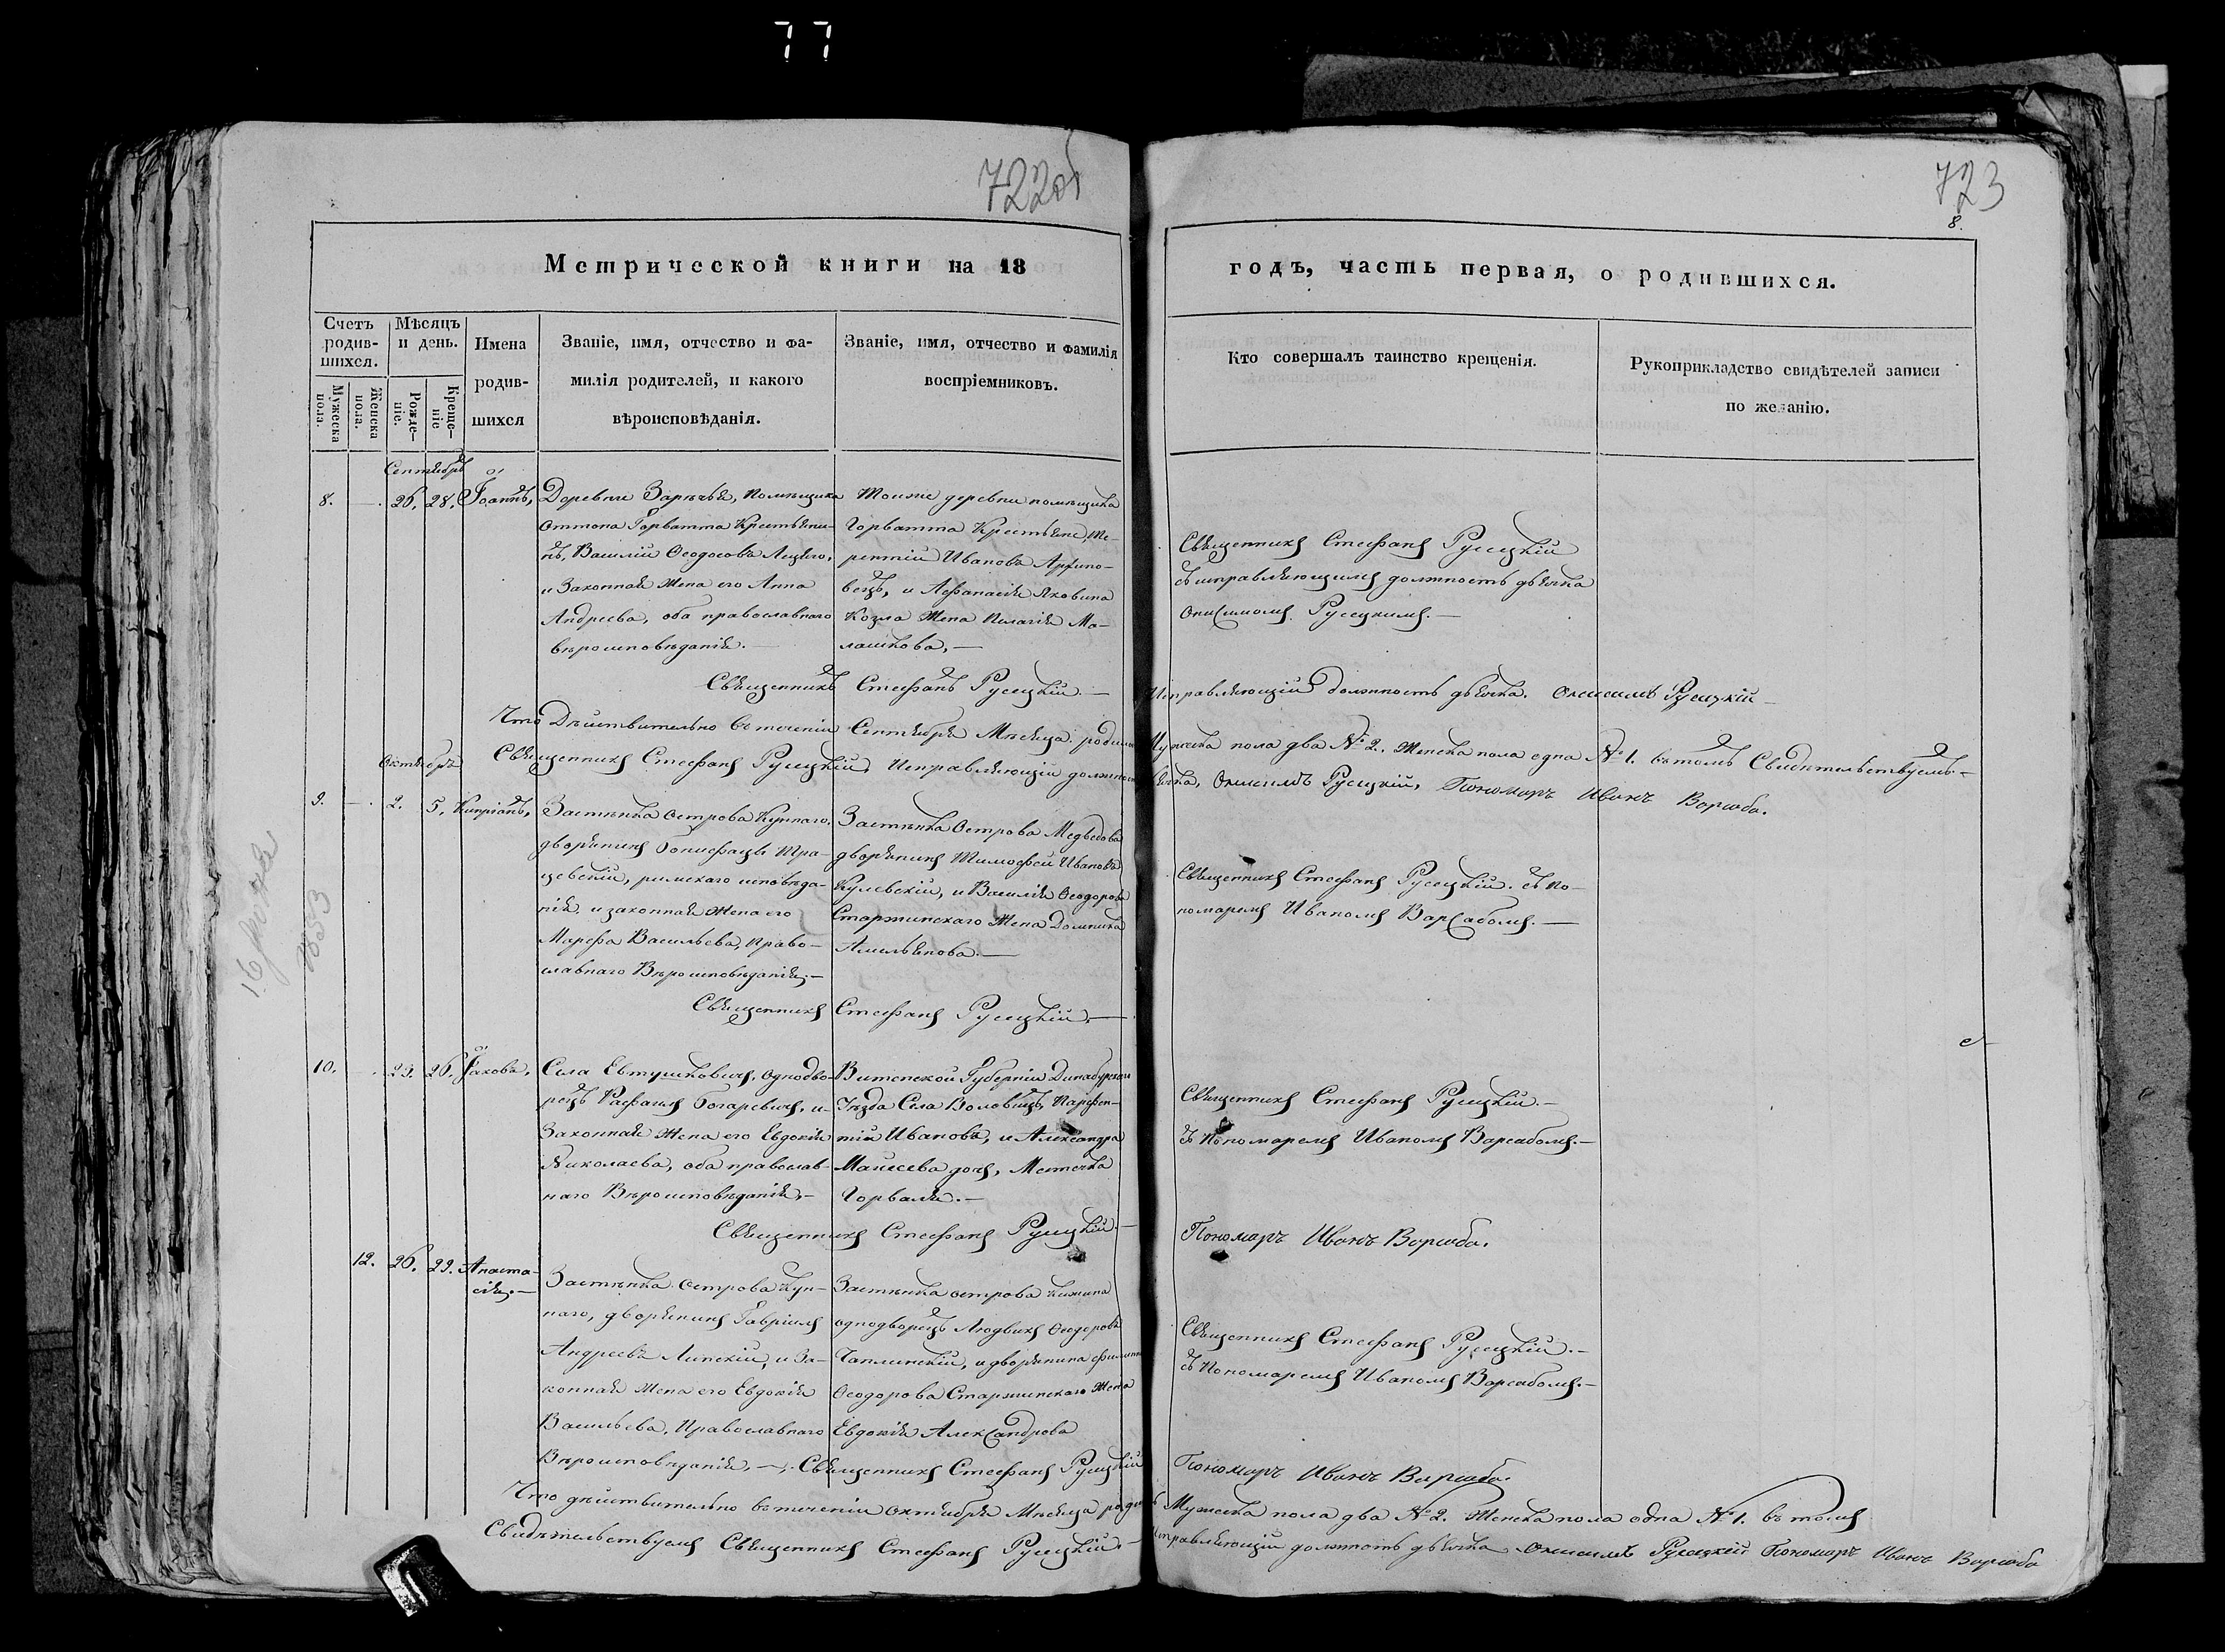 77
722об
723
8.
Метрической книги на 18
годъ, часть первая, о родившихся.
Счетъ родив-шихся.
Мѣсяцъ и день.
Имена родив-шихся
Званіе, имя, отчество и фа-
милія родителей, и какого
вѣроисповѣданія.
Званіе, имя, отчество и фамилія
воспріемниковъ.
Кто совершалъ таинство крещенія.
Рукоприкладство свидѣтелей записи
по желанію.
Мужеска пола.
Женска пола.
Рожде-ніе.
Креще-ніе
Сентябрь
8. — 26. 28. Іоаннъ,
Деревни Зарѣчья, помѣщика
Оттона Горватта Крестьяни-
нъ, Василій Ѳеодосовъ Лецкаго,
и Законная жена его Анна
Андреева, оба православнаго
вѣроисповѣданія. —
Тоиже деревни помѣщика
Горватта Крестьяне Те-
рентій Ивановъ Архипо-
вецъ, и Аѳанасія Яковина
Козла жена Пелагія Ма-
лашкова, —
Священникъ Стефанъ Русецкій
съ исправляющимъ должность дьячка
Онисимомъ Русецкимъ. —
Священникъ Стефанъ Русецкій. —
Исправляющій должность дьячка. Онисимъ Русецкій —
Что Дѣйствительно въ теченіи Сентября Мѣсяца родилось Мужеска пола два № 2. Женска пола одна № 1. въ томъ Свидѣтельствуемъ —
Священникъ Стефанъ Русецкій Исправляющій должность дьячка, Онисимъ Русецкій, Пономарь Иванъ Варсаба.
Октябрь
9. — 2. 5. Кипріанъ,
Застѣнка Острова Купнаго,
дворянинъ Бонифацы Тра-
цевскій, римскаго исповѣда-
нія, и законная жена его
Марѳа Васильева, Право-
славнаго Вѣроисповѣданія; —
Застѣнка Острова Медведова
дворянинъ Тимоѳей Ивановъ
Кулевскій, и Василія Ѳеодорова
Старжинскаго Жена Домника
Амельянова. —
Священникъ Стефанъ Русецкій. съ По-
номаремъ Иваномъ Варсабомъ. —
Священникъ Стефанъ Русецкій, —
10. — 23. 26. Іаковъ,
Села Евтушковичъ, Однодво-
рецъ Рафаилъ Богаревичъ, и
Законная жена его Евдокія
Николаева, оба православ-
наго Вѣроисповѣданія, —
Витепской Губерніи Динабурскаго
Уѣзда Села Воловицъ, Парфен-
тій Ивановъ, и Александра
Маисеева дочь, Местечка
Горваля. —
Священникъ Стефанъ Русецкій. —
съ Пономаремъ Иваномъ Варсабомъ. —
Священникъ Стефанъ Русецкій —
Пономарь Иванъ Варсаба.
12. 26. 29. Анаста-
сія. —
Застѣнка Острова Куп-
наго, дворянинъ Гавріилъ
Андреевъ Липскій, и За-
конная жена его Евдокія
Васильева, Православнаго
Вѣроисповѣданія, —
Застѣнка острова
однодворецъ Людвикъ Ѳеодоровъ
Чаплинскій, и дворянина
Ѳеодорова Старжинскаго жена
Евдокія Александрова
Священникъ Стефанъ Русецкій. —
съ Пономаремъ Иваномъ Варсабомъ. —
Священникъ Стефанъ Русецкій
Пономарь Иванъ Варсаба.
Что дѣйствительно въ теченіи октября Мѣсяца родилось Мужеска пола два № 2. Женска пола одна № 1. въ томъ
Свидѣтельствуемъ Священникъ Стефанъ Русецкій. — Исправляющій должность дьячка Онисимъ Русецкій Пономарь Иванъ Варсаба